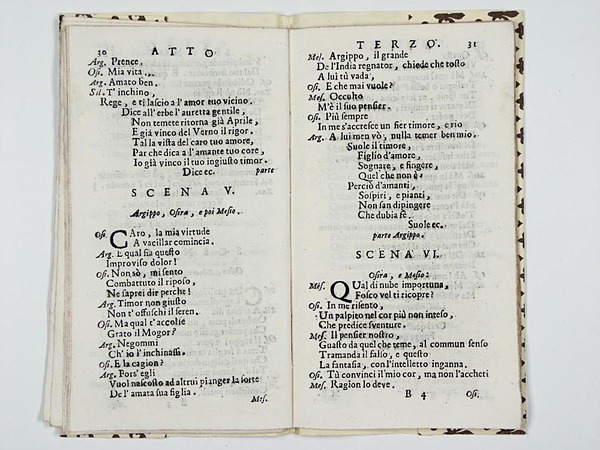 30 ATTO
Arg. Prence.
Osi. Mia vita...
Arg. Amato ben.
Sil. T' inchino,
Rege, e ti lascio a l' amor tuo vicino.
Dice all' erbe l' auretta gentile,
Non temete ritorna già Aprile,
E già vinco del Verno il rigor.
Tal la vista del caro tuo amore,
Par che dica a l' amante tuo core,
Io già vinco il tuo ingiusto timor.
Dice ec. parte
SCENA V.
Argippo, Osira, e poi Mesio.
Osi. CAro, la mia virtude
A vacillar comincia.
Arg. E qual sia questo
Improviso dolor!
Osi. Non sò, mi sento
Combattuto il riposo,
Ne saprei dir perche!
Arg. Timor non giusto
Non t' offuschi il seren.
Osi. Ma qual t' accolse
Grato il Mogor?
Arg. Negommi
Ch' io l' inchinassi.
Osi. E la cagion?
Arg. Fors' egli
Vuol nascosto ad altrui pianger la sorte
De l' amata sua figlia.
Mes.
TERZO. 31
Mes. Argippo, il grande
De l'India regnator, chiede che tosto
A lui tù vada,
Osi. E che mai vuole?
Mes. Occulto
M'è il suo pensier.
Osi. Più sempre
In me s'accresce un fier timore, e rio
Arg. A lui men vò, nulla temer ben mio.
Suole il timore,
Figlio d'amore,
Sognare, e fingere,
Quel che non è:
Perciò d'amanti,
Sospiri, e pianti,
Non san dipingere
Che dubia fè.
Suole ec.
parte Argippo.
SCENA VI.
Osira, e Mesio.
Mes. QUal di nube importuna,
Fosco vel ti ricopre?
Osi. In me risento,
Un palpito nel cor più non inteso,
Che predice sventure.
Mes. Il pensier nostro,
Guasto da quel che teme, al commun senso
Tramanda il falso, e questo
La fantasia, con l'intelletto inganna.
Osi. Tù convinci il mio cor, ma non l'accheti
Mes. Ragion lo deve.
B 4 Osi.